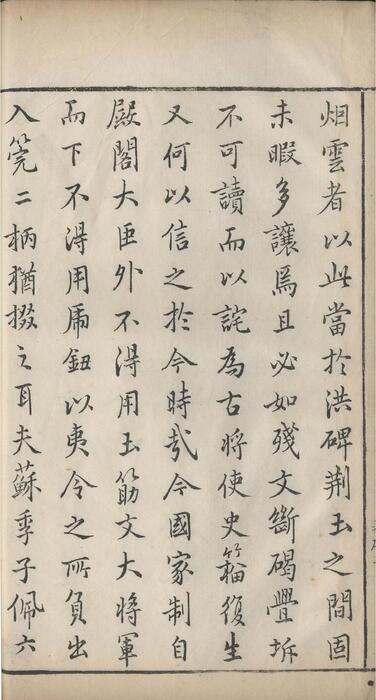 烟雲者以此當於洪碑荆玉之間固
未暇多讓焉且必如殘文斷碣疊坼
不可讀而以詫為古將使史籀復生
又何以信之於今時哉今國家制自
殿閣大臣外不得用玉筯文大將軍
而下不得用虎鈕以夷令之所負出
入筦二柄猶掇之耳夫蘇季子佩六